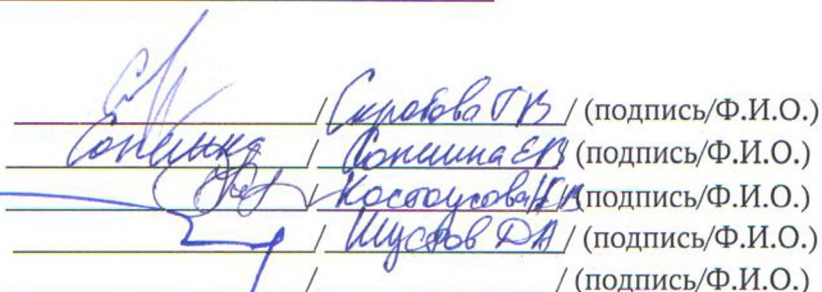 / Скробова Г В / (подпись/Ф.И.О.)
Сопешина / Сопешина ЕВ (подпись/Ф.И.О.)
/ Костоусова НВ (подпись/Ф.И.О.)
/ Шустов ДА / (подпись/Ф.И.О.)
/ / (подпись/Ф.И.О.)